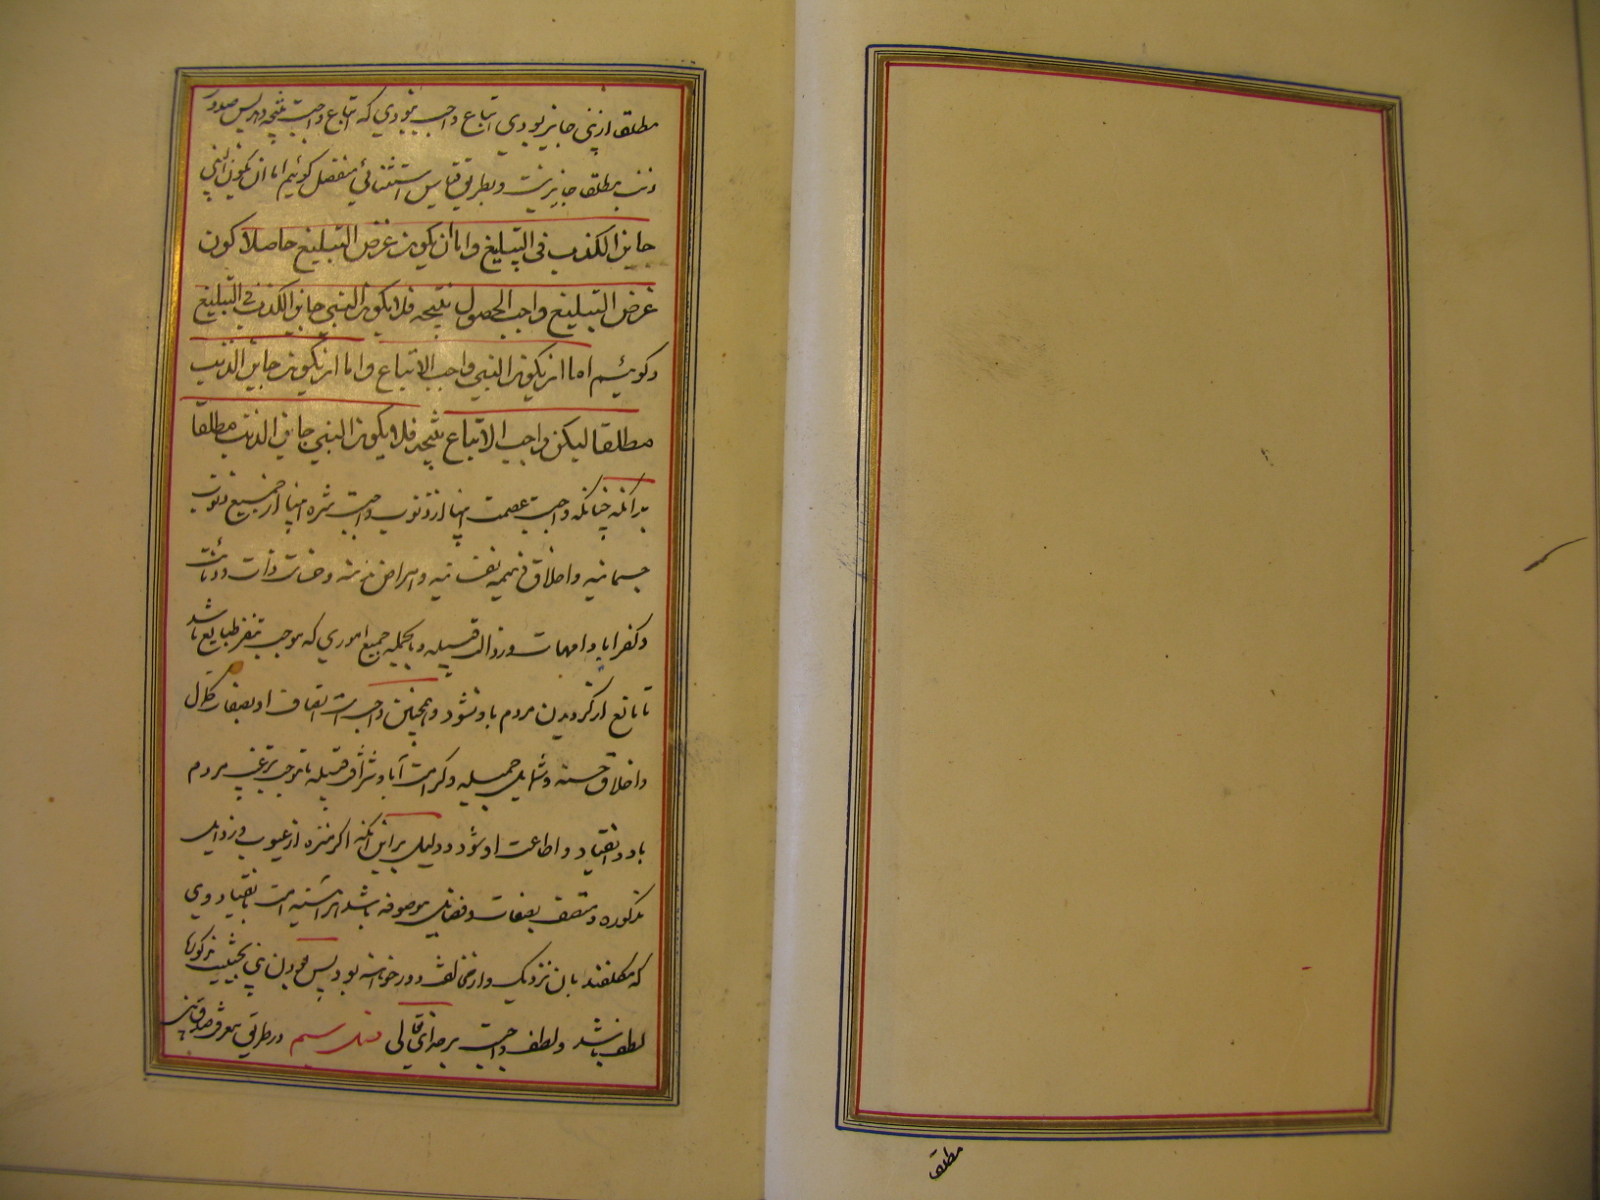 مطلقا از نبی جایز بودی اتباع واجب نبودی که اتباع واجبست نتیجه دهد پس صدور
ذنب مطلقا جایز نیست و بطریق قیاس استثنائی منفصل گوئیم اما ان یکون النبی
جایز الکذب فی التبلیغ واما ان یکون غرض التبلیغ حاصلا کون
غرض التبلیغ واجب الحصول نتیجه فلا یکون النبی جایز الکذب فی التبلیغ
وکوئیم اما ان یکون النبی واجب الاتباع واما ان یکون جایز الذنب
مطلقا لیکن واجب الاتباع نتیجه فلا یکون النبی جایز الذنب مطلقا
بدانکه چنانکه واجبست عصمت انبیا از ذنوب واجبست تنزه انبیا از جمیع عیوب
جسمانیه واخلاق ذمیمه نفسانیه وامراض مزمنه وخساست ذات ودنائت
وکفر ابا وامهات ورذالت قبیله وبالجمله جمیع اموری که موجب تنفر طبایع باشد
تا مانع از کرویدن مردم باو نشود وهمچنین واجب است اتصاف او بصفات کمال
واخلاق حسنه وشمایل جمیله وکرامت آبا وشرافت قبیله تا موجب ترغیب مردم
باو وانقیاد واطاعت او شود ودلیل بر این آنکه اکر منزه از عیوب ورذایل
مذکوره ومتصف بصفات وفضایل موصوفه باشد هر آینه امت بانقیاد وی
که مکلفند بآن نزدیک واز مخالفت دور خواهند بود پس بودن نبی بحیثیت مذکورها
لطف باشد ولطف واجبست بر خدای تعالی فصل سیم در طریق معرفت صدق نبی
مطلقا